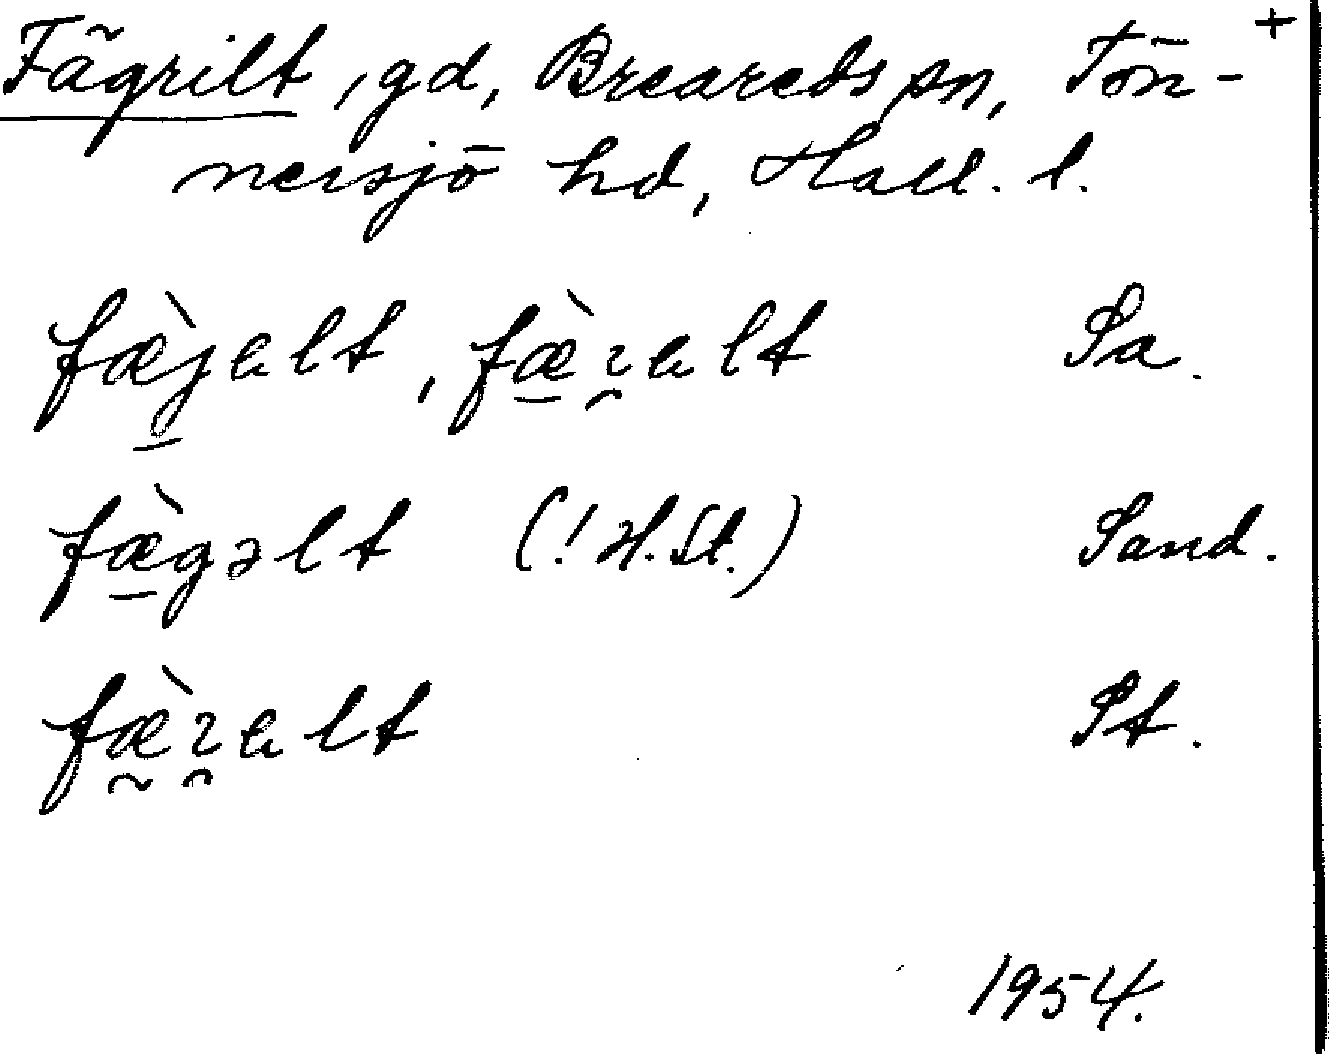 Fägrilt, gd, Breareds sn, Tön- +
nersjö hd, Hall. l.
fæ̀jalt, fæ̀ralt Sa.
fæ̀gəlt (! H. St.) Sand.
fæ̀ralt St.
1954.